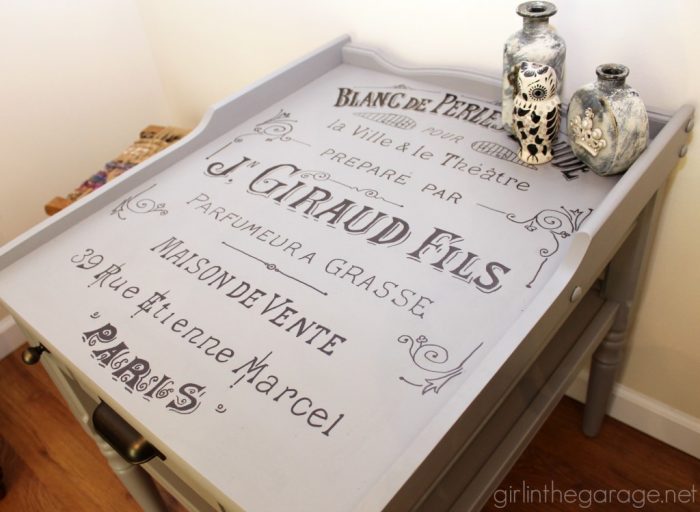 BLANC DE PERLES
POUR
la Ville & le Théâtre
PREPARÉ PAR
Jⁿ GIRAUD FILS
PARFUMEUR A GRASSE
MAISON DE VENTE
39 Rue Etienne Marcel
PARIS
girlinthegarage.net